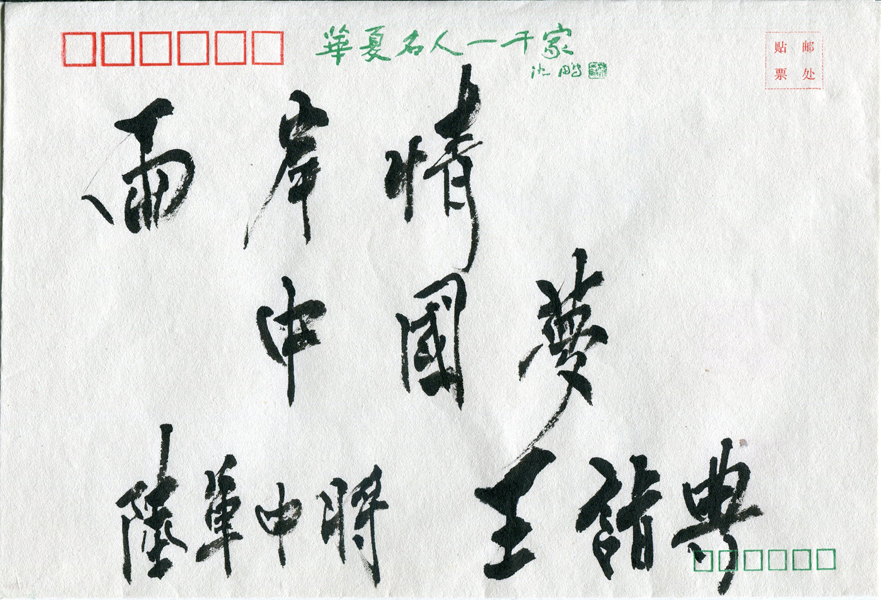 華夏名人一千家
沈鹏
贴 邮
票 处
兩岸情
中國夢
陸軍中將 王詣典